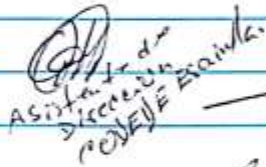 Asistente de
Dirección
CODEDE Escuintla.